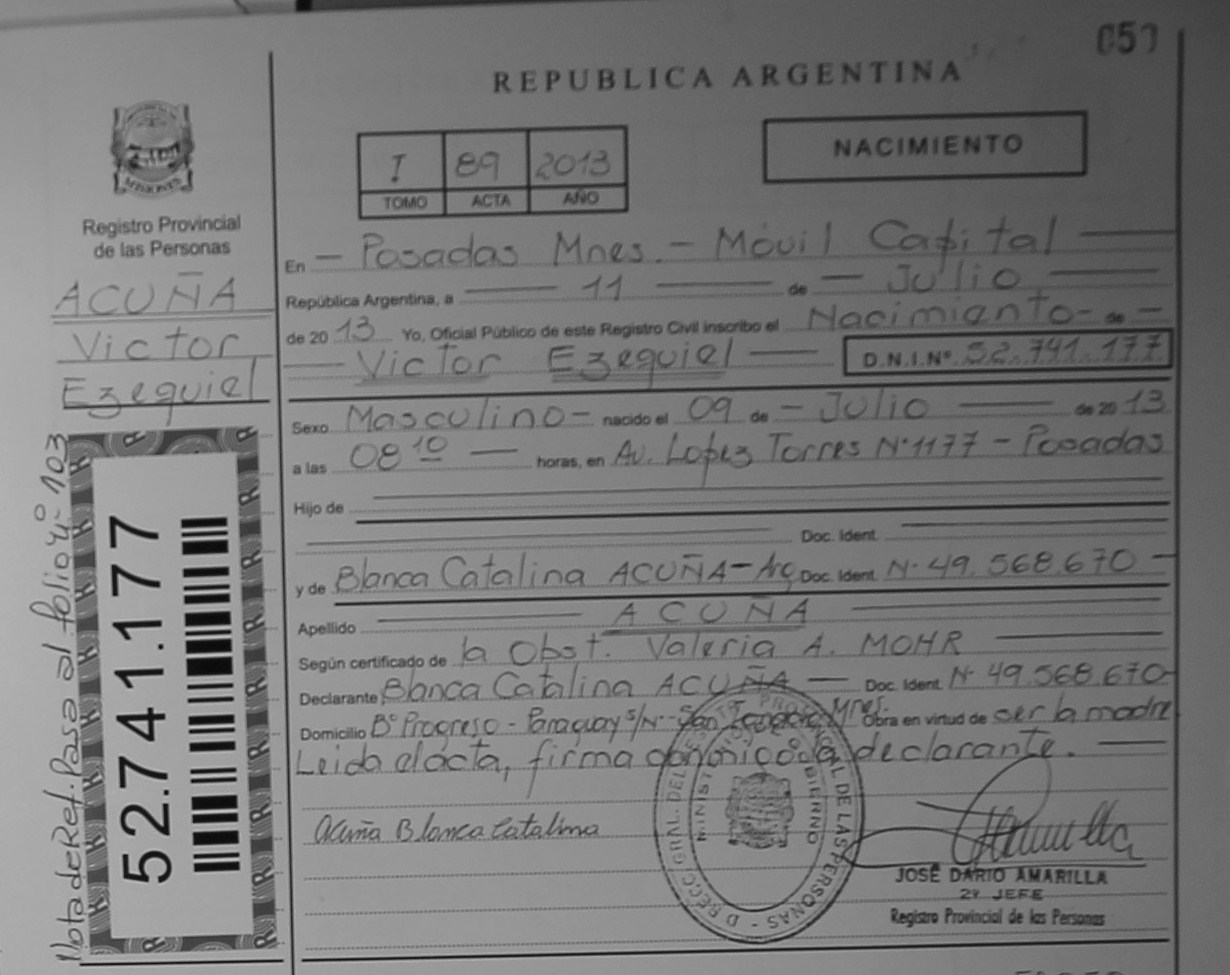 059
REPUBLICA ARGENTINA
MISIONES
Registro Provincial
de las Personas
ACUÑA
Victor
Ezequiel
Nota de Ref. Pasa al folio Nº 103
52.741.177
I 89 2013
TOMO ACTA AÑO
NACIMIENTO
En — Posadas Mnes. — Móvil Capital —
República Argentina, a — 11 — de — Julio —
de 2013 Yo, Oficial Público de este Registro Civil inscribo el Nacimiento - de -
— Victor Ezequiel — D.N.I.Nº 52.741.177
Sexo Masculino — nacido el 09 de — Julio — de 2013
a las 08 10 — horas, en Av. Lopez Torres Nº 1177 - Posadas
Hijo de
Doc. Ident.
y de Blanca Catalina ACUÑA - Arg Doc. Ident. Nº 49.568.670 -
Apellido — ACUÑA —
Según certificado de la Obst. Valeria A. MOHR —
Declarante Blanca Catalina ACUÑA — Doc. Ident. Nº 49.568.670-
Domicilio Bº Progreso - Paraguay s/Nº - San Ignacio Mnes. Obra en virtud de ser la madre
Leida el acta, firma conmigo la declarante. —
Acuña Blanca Catalina
JOSÉ DARIO AMARILLA
2º JEFE
Registro Provincial de las Personas